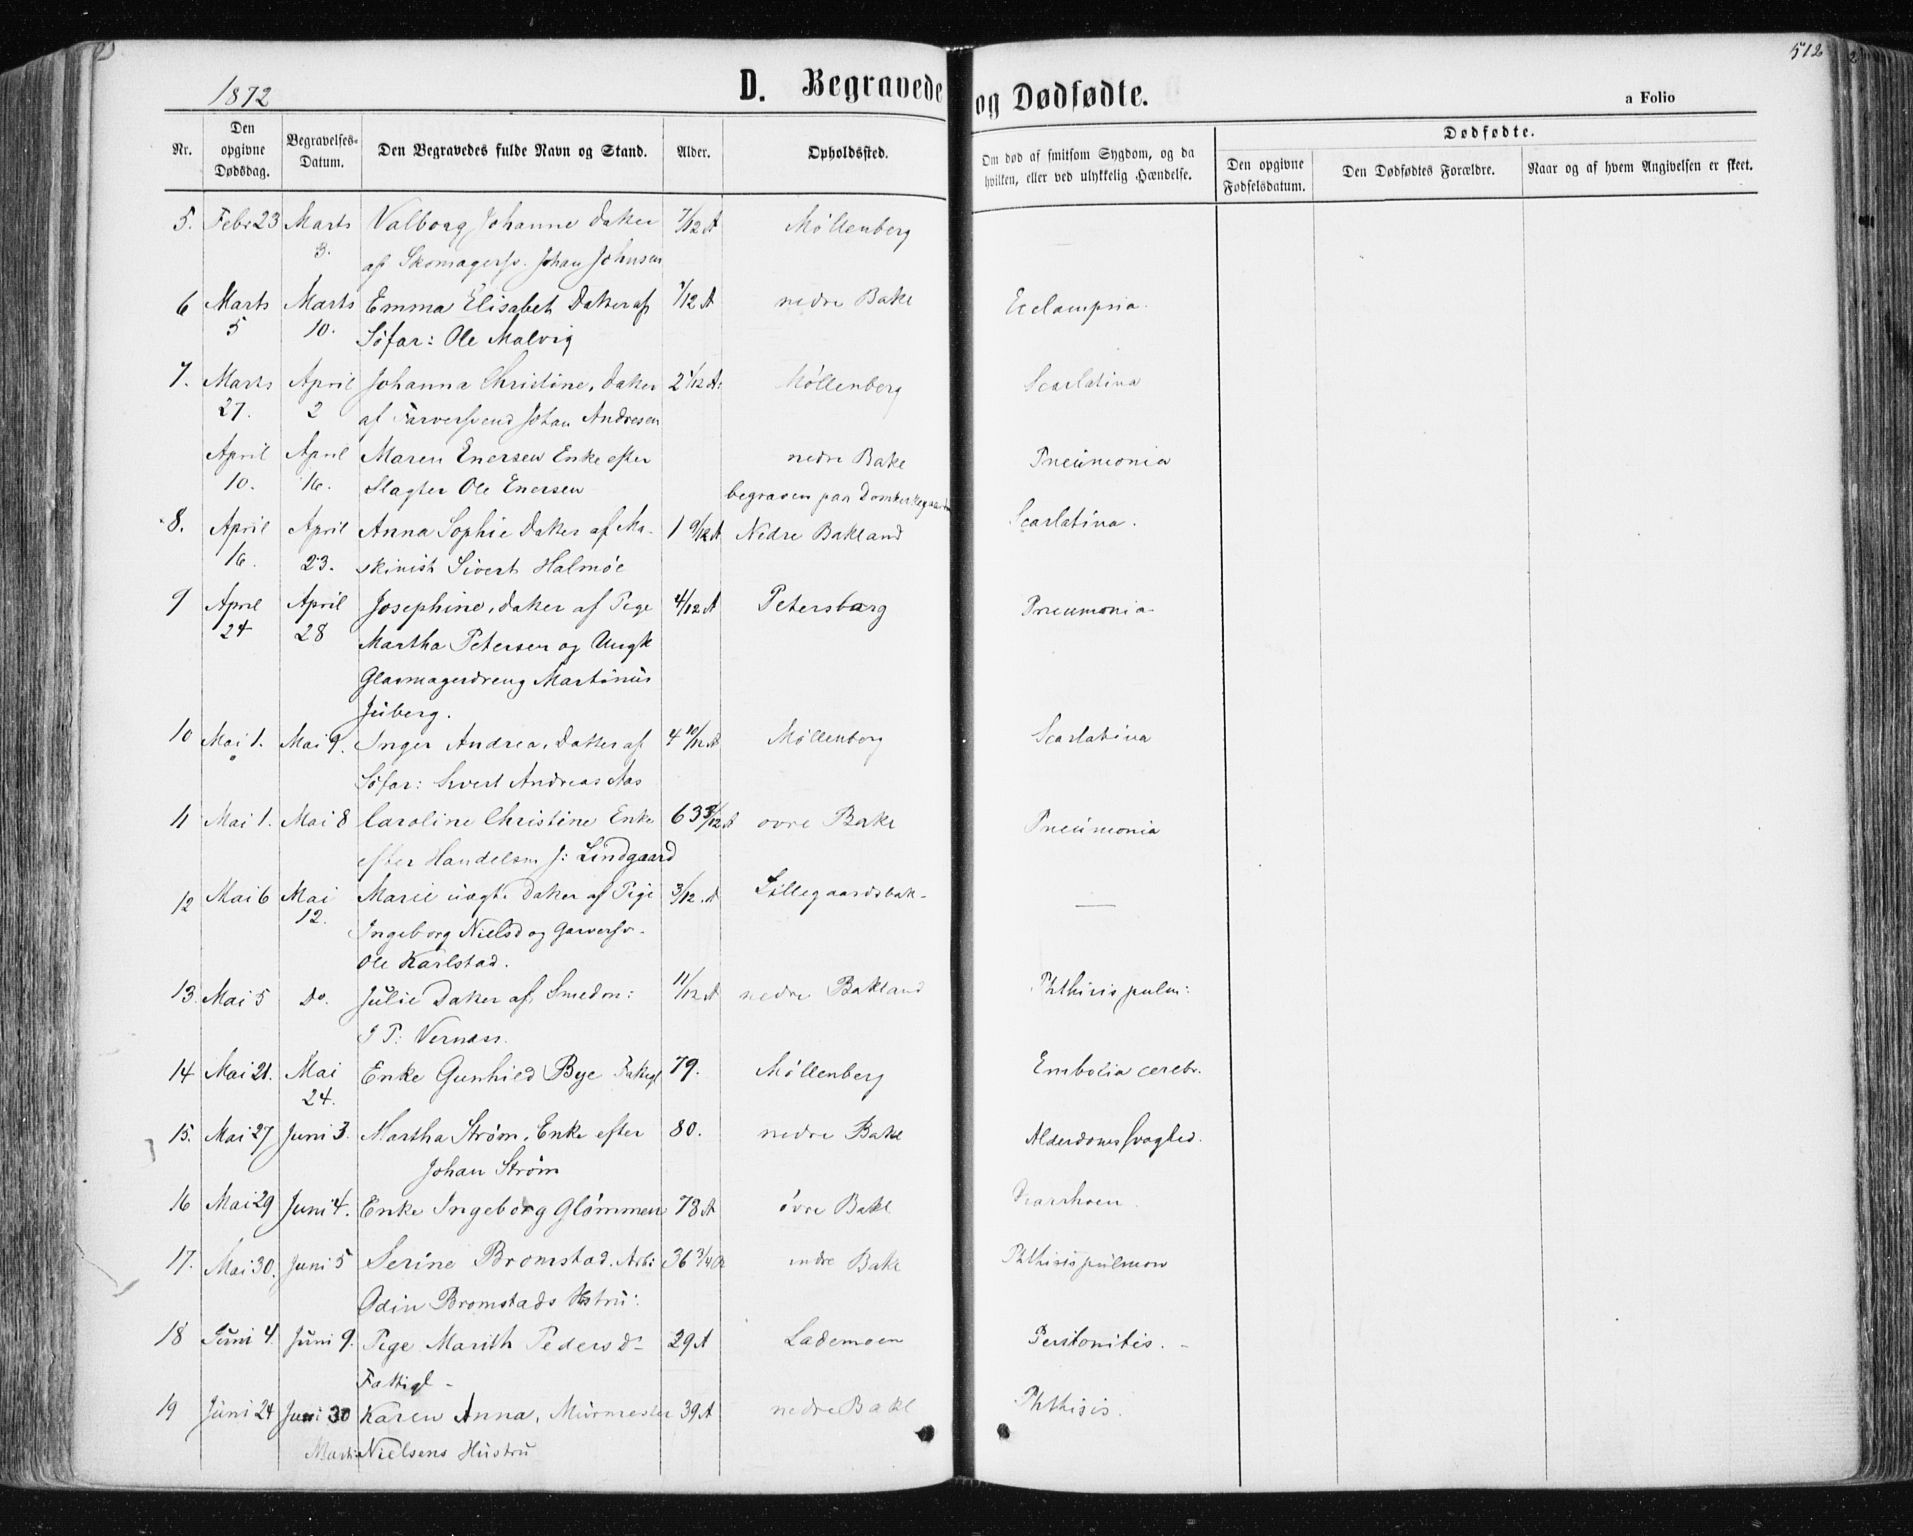 512
1872
D. Begravede og Dødfødte.
a Folio
Nr.
Den opgivne Dødsdag.
Begravelses-Datum.
Den Begravedes fulde Navn og Stand.
Alder.
Opholdssted.
Om død af smitsom Sygdom, og da hvilken, eller ved ulykkelig Hændelse.
Dødfødte.
Den opgivne Fødselsdatum.
Den Dødfødtes Forældre.
Naar og af hvem Angivelsen er skeet.
5. Febr 23 Marts Valborg Johanne Datter 7/12 A Møllenberg
3. af Skomagersv. Johan Johnsen
6 Marts Marts Emma Elisabet Datter af 1/12 A nedre Bakl Eclampsia.
5 10. Søfar: Ole Malvig
7. Marts April Johanna Christine, Datter 2 1/12 A. Møllenberg Scarlatina
27. 2 af Farversvend Johan Andresen
April April Maren Enersen Enke efter nedre Bakl Pneumonia
10. 16. Slagter Ole Enersen begraven paa Domkirkegaarden
8. April April Anna Sophie Datter af Ma- 1 9/12 A Nedre Bakland Scarlatina.
16. 23. skinist Sivert Halmöe
9 April April Josephine, Datter af Pige 4/12 A Petersborg Pneumonia
24 28 Martha Petersen og Ungk
Glasmagerdreng Martinus
Juberg.
10 Mai 1. Mai 9. Inger Andrea, Datter af 4 10/12 A Møllenberg Scarlatina
Søfar: Sivert Andreas Aas
11 Mai 1. Mai 8 Caroline Christine Enke 63 3/12 A ovre Bakl Pneumonia
efter Handelsm J: Lindgaard
12 Mai 6 Mai Marie uægt. Datter af Pige 3/12. A Lillegaardsbak-
12. Ingeborg Nielsd og Garversv.
Ole Karlstad.
13. Mai 5 Do. Julie Datter af Smedm: 11/12 A nedre Bakland Phthisis pulm:
J P: Vernæss.
14 Mai 21. Mai Enke Gunhild Bye Fattigl 79. Møllenberg Embolia cerebr.
24.
15. Mai 27 Juni 3. Martha Strøm, Enke efter 80. nedre Bakl Alderdomssvaghed.
Johan Strøm
16 Mai 29 Juni 4. Enke Ingeborg Glømmen 78 A øvre Bakl Diarrhoen.
17. Mai 30. Juni 5 Serine Bromstad. Arb: 36 3/4 A nedre Bakl Phthisis pulmon
Odin Bromstads Hstru:
18 Juni 4. Juni 9. Pige Marith Pedersd- 29 A Lademoen Peritonitis.
Fattigl -
19 Juni 24 Juni 30 Karen Anna, Murmester 39 A nedre Bakl Phthisis.
Martin Nielsens Hustru